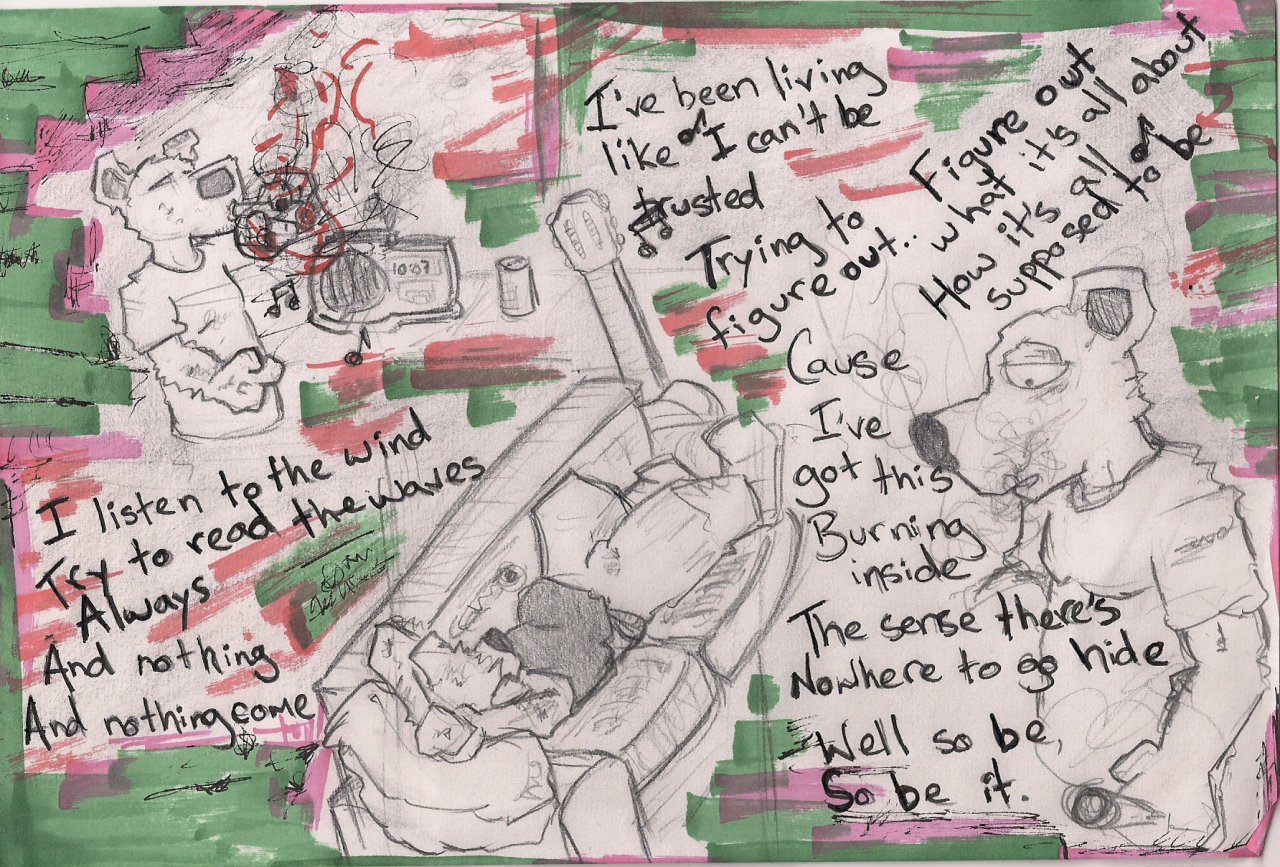 10:07
I listen to the wind
Try to read the waves
Always
And nothing
And nothing come
I've been living
like I can't be
trusted
Trying to
figure out..
Figure out
what it's all about
How it's all
supposed to be
Cause
I've
got this
Burning
inside
The sense there's
Nowhere to go hide
Well so be,
So be it.